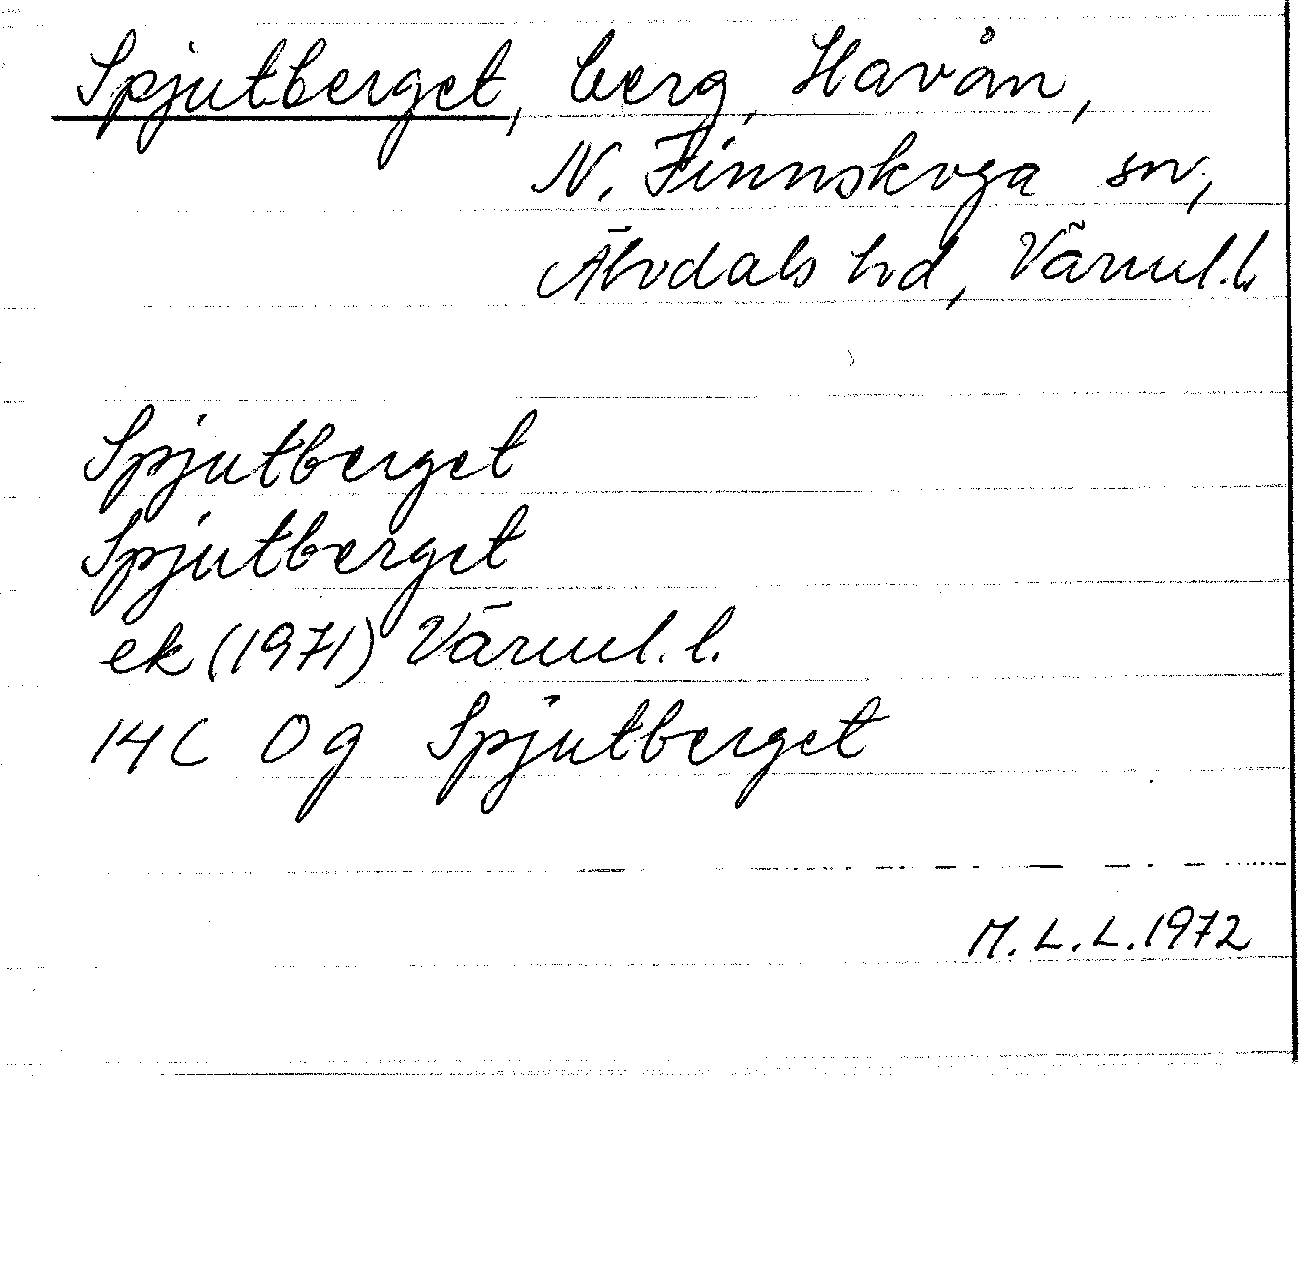 Spjutberget, berg, Havån,
N. Finnskoga sn,
Älvdals hd, Värml. l.
Spjutberget
Spjutberget
ek (1971) Värml. l.
14C 0g Spjutberget
M. L. L. 1972